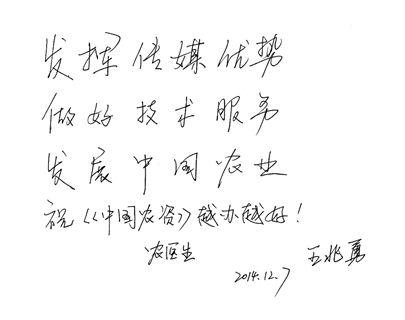 发挥传媒优势
做好技术服务
发展中国农业
祝《中国农资》越办越好！
农医生 王兆勇
2014.12.7